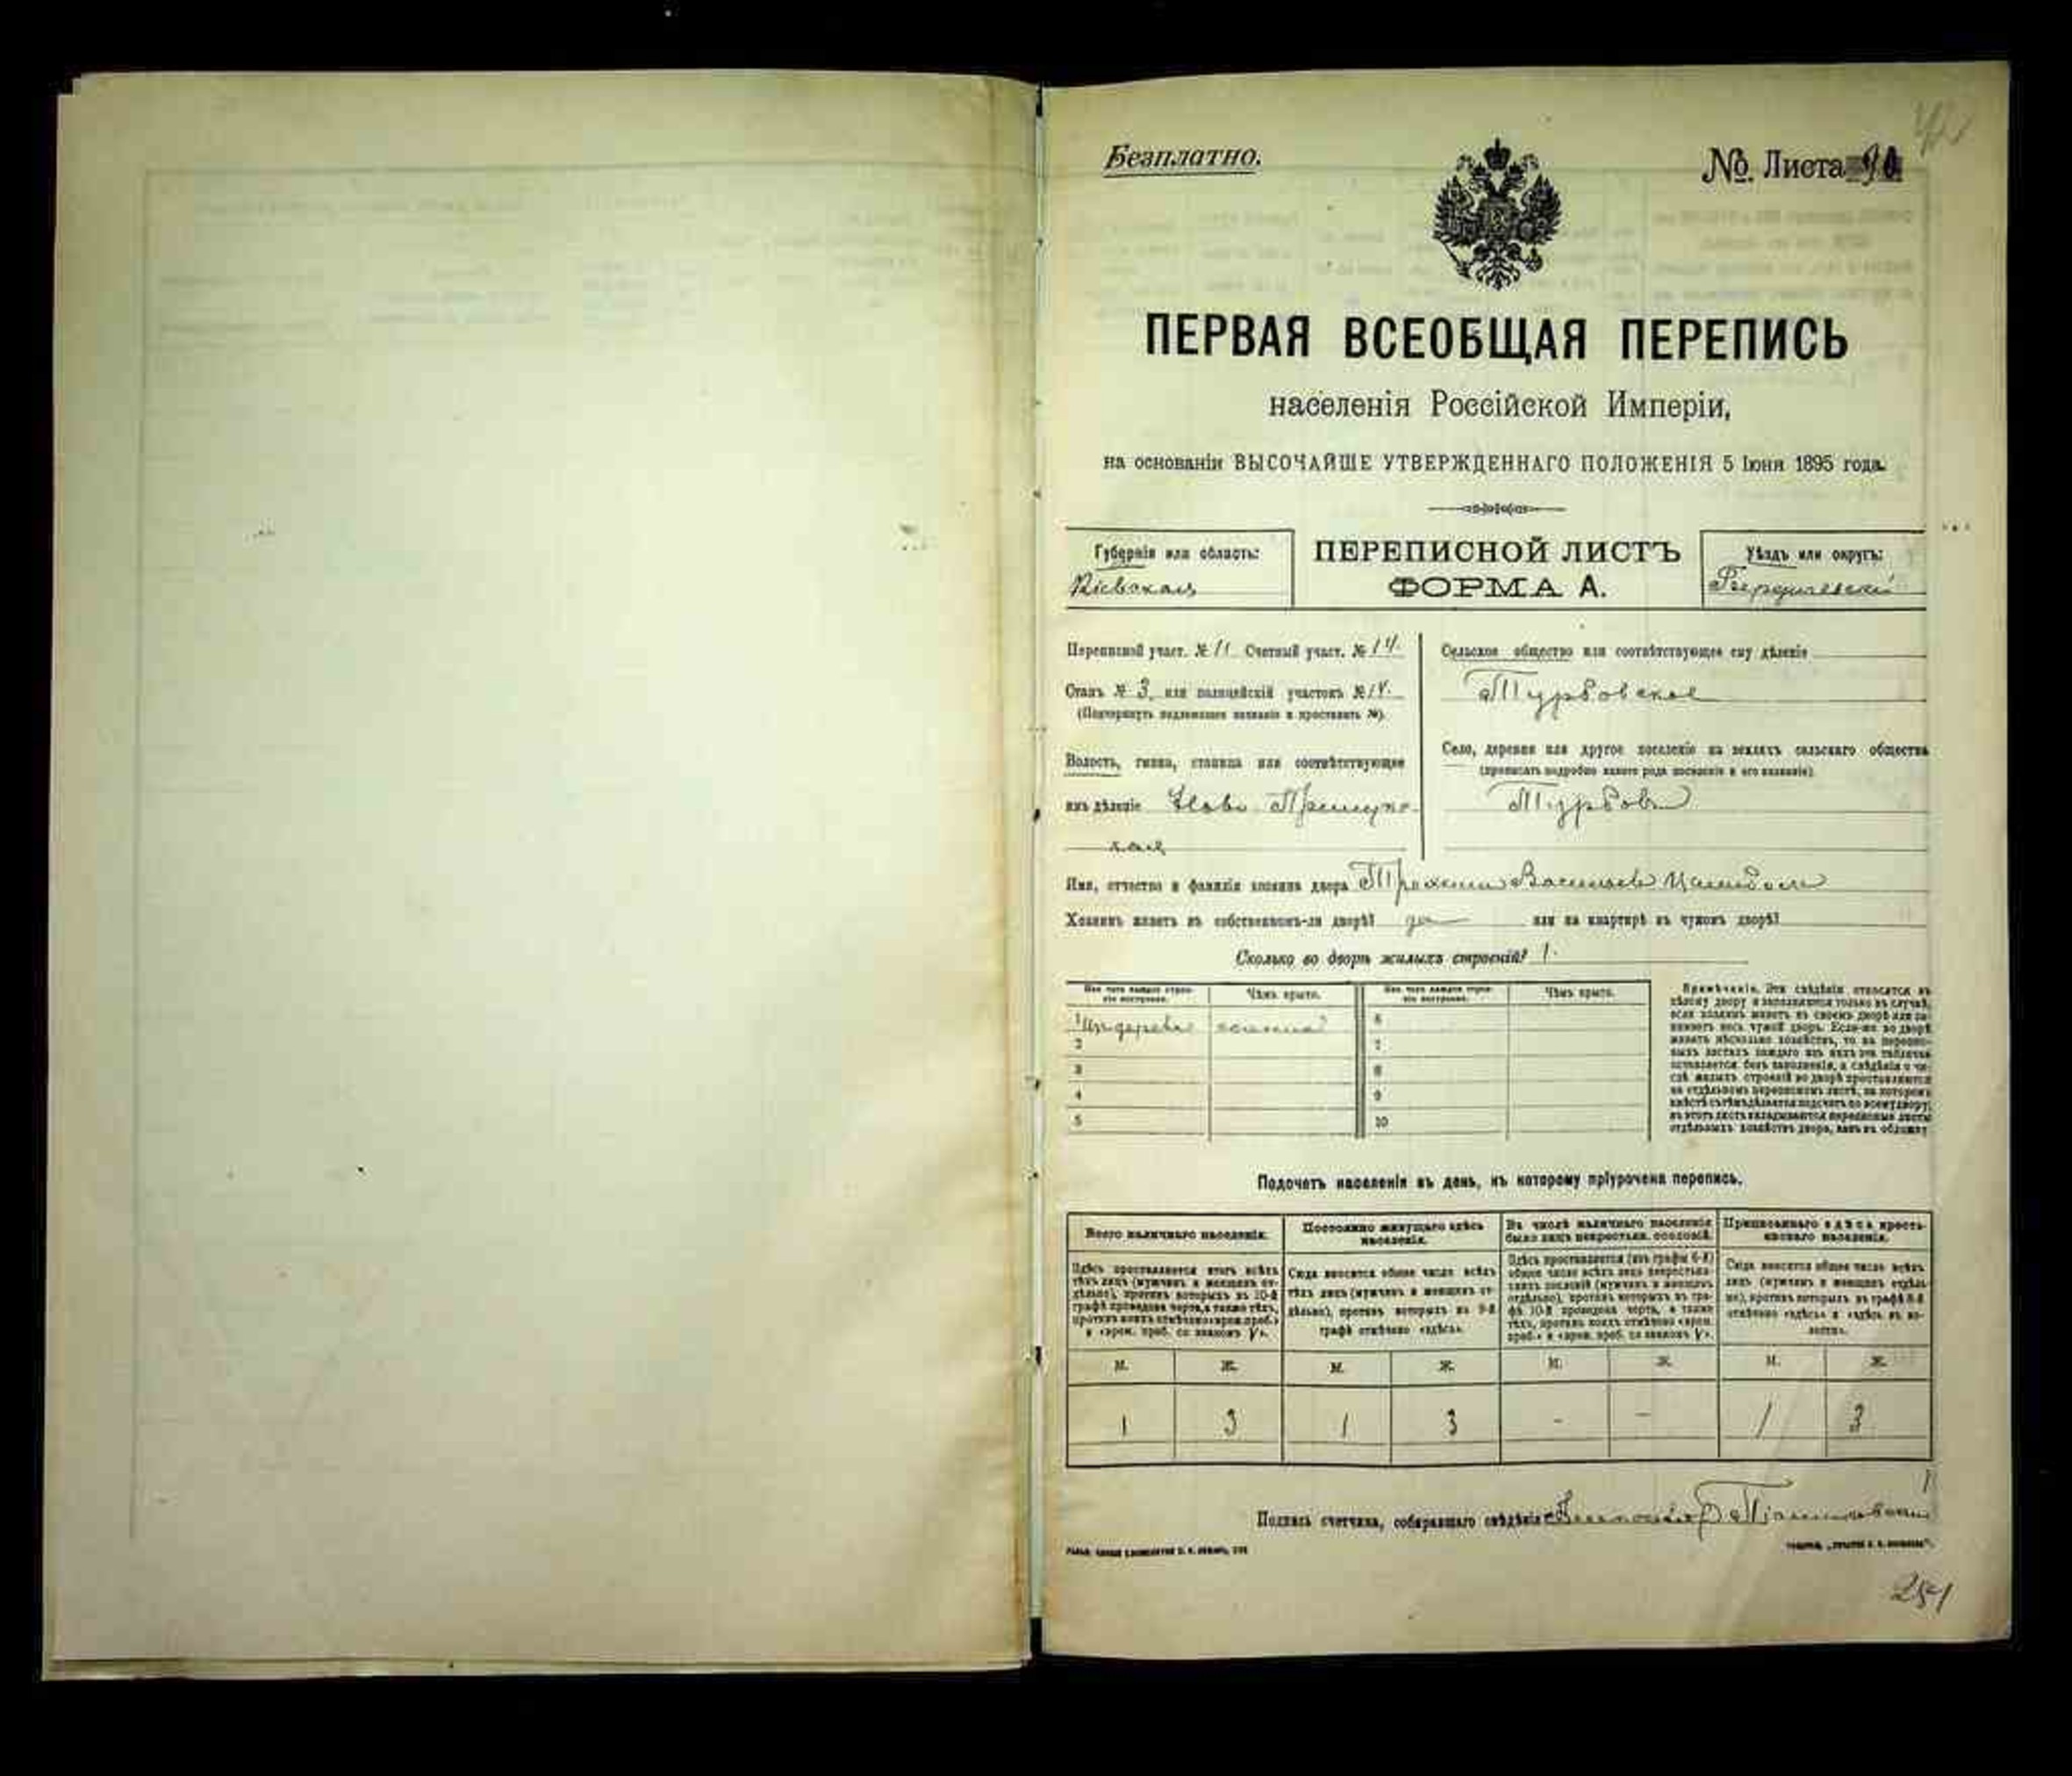 Безплатно.
№ Листа 90
ПЕРВАЯ ВСЕОБЩАЯ ПЕРЕПИСЬ
населенія Россійской Имперіи,
на основаніи ВЫСОЧАЙШЕ УТВЕРЖДЕННАГО ПОЛОЖЕНІЯ 5 Іюня 1895 года.
Губернія или область:
Кіевская
ПЕРЕПИСНОЙ ЛИСТЪ
ФОРМА А.
Уѣздъ или округъ:
Бердичевскій
Переписной участ. № 11 Счетный участ. № 14.
Станъ № 3, или полицейскій участокъ № 14.
(Подчеркнуть надлежащее названіе и проставить №).
Волость, гмина, станица или соотвѣтствующее
имъ дѣленіе Ново Прилук-
ская
Сельское общество или соотвѣтствующее ему дѣленіе
Турбовское
Село, деревня или другое поселеніе на земляхъ сельскаго общества
(прописать подробно какого рода поселеніе и его названіе).
Турбовъ
Имя, отчество и фамилія хозяина двора Трохимъ Васильевъ
Хозяинъ живетъ въ собственномъ-ли дворѣ? да или на квартирѣ въ чужомъ дворѣ?
Сколько во дворѣ жилыхъ строеній? 1.
Изъ чего каждое строе-
ніе построено.
Чѣмъ крыто.
Изъ чего каждое строе-
ніе построено.
Чѣмъ крыто.
1 Изъ дерева соломой
6
2
7
3
8
4
9
5
10
Примѣчаніе. Эти свѣдѣнія относятся къ
цѣлому двору и заполняются только въ случаѣ,
если хозяинъ живетъ въ своемъ дворѣ или за-
нимаетъ весь чужой дворъ. Если-же во дворѣ
живетъ нѣсколько хозяйствъ, то на перепис-
ныхъ листахъ каждаго изъ нихъ эта табличка
оставляется безъ заполненія, а свѣдѣнія о чи-
слѣ жилыхъ строеній во дворѣ проставляются
на отдѣльномъ переписномъ листѣ, на которомъ
вмѣстѣ съ тѣмъ дѣлается подсчетъ по всему двору;
въ этотъ листъ вкладываются переписные листы
отдѣльныхъ хозяйствъ двора, какъ въ обложку
Подсчетъ населенія въ день, къ которому пріурочена перепись.
Всего наличнаго населенія.
Постоянно живущаго здѣсь
населенія.
Въ числѣ наличнаго населенія
было лицъ некрестьян. сословій.
Приписаннаго здѣсь кресть-
янскаго населенія.
Здѣсь проставляется итогъ всѣхъ
тѣхъ лицъ (мужчинъ и женщинъ от-
дѣльно), противъ которыхъ въ 10-й
графѣ проведена черта, а также тѣхъ,
противъ коихъ отмѣчено «врем. преб.»
и «врем. преб. со знакомъ V».
Сюда вносится общее число всѣхъ
тѣхъ лицъ (мужчинъ и женщинъ от-
дѣльно), противъ которыхъ въ 9-й
графѣ отмѣчено «здѣсь».
Здѣсь проставляется (изъ графы 6-й)
общее число всѣхъ лицъ некрестьян-
скихъ сословій (мужчинъ и женщинъ
отдѣльно), противъ которыхъ въ гра-
фѣ 10-й проведена черта, а также
тѣхъ, противъ коихъ отмѣчено «врем.
преб.» и «врем. преб. со знакомъ V».
Сюда вносится общее число всѣхъ
лицъ (мужчинъ и женщинъ отдѣль-
но), противъ которыхъ въ графѣ 8-й
отмѣчено «здѣсь» и «здѣсь въ во-
лости».
М. Ж. М. Ж. М. Ж. М. Ж.
1 3 1 3 - - 1 3
Подпись счетчика, собиравшаго свѣдѣнія
251